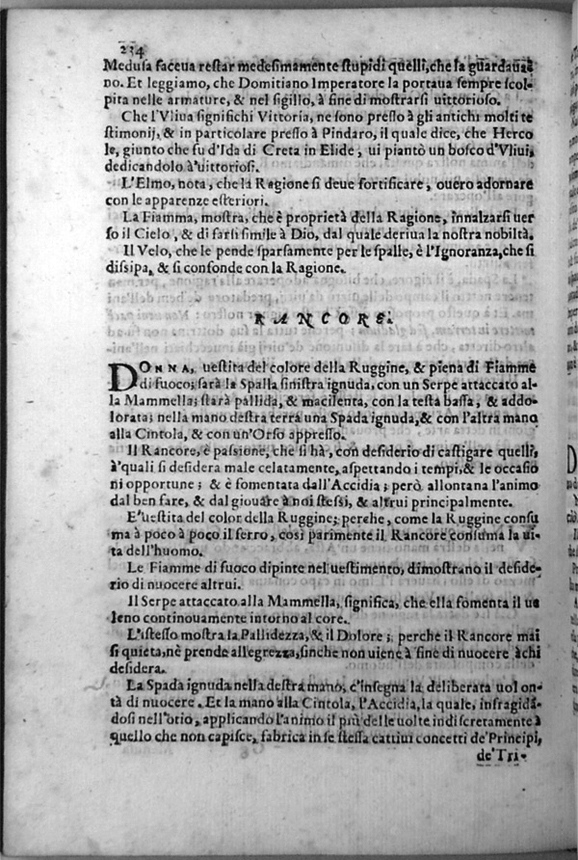 234
Meduſa faceua reſtar medeſimamente ſtupidi quelli, che la guardaua
no. Et leggiamo, che Domitiano Imperatore la portaua ſempre ſcol-
pita nelle armature, & nel ſigillo, à fine di moſtrarſi uittorioſo.
Che l'Vliua ſignifichi Vittoria, ne ſono preſſo à gli antichi molti te
ſtimonij, & in particolare preſſo à Pindaro, il quale dice, che Herco
le, giunto che fu d'Ida di Creta in Elide, ui piantò un boſco d'Vliui,
dedicandolo à'uittorioſi.
L'Elmo, nota, che la Ragione ſi deue fortificare, ouero adornare
con le apparenze eſteriori.
La Fiamma, moſtra, che è proprietà della Ragione, innalzarſi uer
ſo il Cielo, & di farſi ſimile à Dio, dal quale deriua la noſtra nobiltà.
Il Velo, che le pende ſparſamente per le ſpalle, è l'Ignoranza, che ſi
diſſipa, & ſi confonde con la Ragione.
RANCORE.
DONNA, ueſtita del colore della Ruggine, & piena di Fiamme
di fuoco; ſarà la Spalla ſiniſtra ignuda, con un Serpe attaccato al-
la Mammella; ſtarà pallida, & macilenta, con la teſta baſſa, & addo-
lorata; nella mano deſtra terrà una Spada ignuda, & con l'altra mano
alla Cintola, & con un'Orſo appreſſo.
Il Rancore, è paſſione, che ſi hà, con deſiderio di caſtigare quelli,
à'quali ſi deſidera male celatamente, aſpettando i tempi, & le occaſio
ni opportune; & è fomentata dall'Accidia; però allontana l'animo
dal ben fare, & dal giouare à noi ſteſſi, & altrui principalmente.
E'ueſtita del color della Ruggine; perche, come la Ruggine conſu
ma à poco à poco il ferro, così parimente il Rancore conſuma la ui-
ta dell'huomo.
Le Fiamme di fuoco dipinte nel ueſtimento, dimoſtrano il deſide-
rio di nuocere altrui.
Il Serpe attaccato alla Mammella, ſignifica, che ella fomenta il ue
leno continouamente intorno al core.
L'iſteſſo moſtra la Pallidezza, & il Dolore; perche il Rancore mai
ſi quieta, nè prende allegrezza, ſinche non uiene à fine di nuocere à chi
deſidera.
La Spada ignuda nella deſtra mano, c'inſegna la deliberata uolon-
tà di nuocere. Et la mano alla Cintola, l'Accidia, la quale, infragidá-
doſi nell'otio, applicando l'animo il più delle uolte indiſcretamente à
quello che non capiſce, fabrica in ſe ſteſſa cattiui concetti de'Principi,
de'Tri-